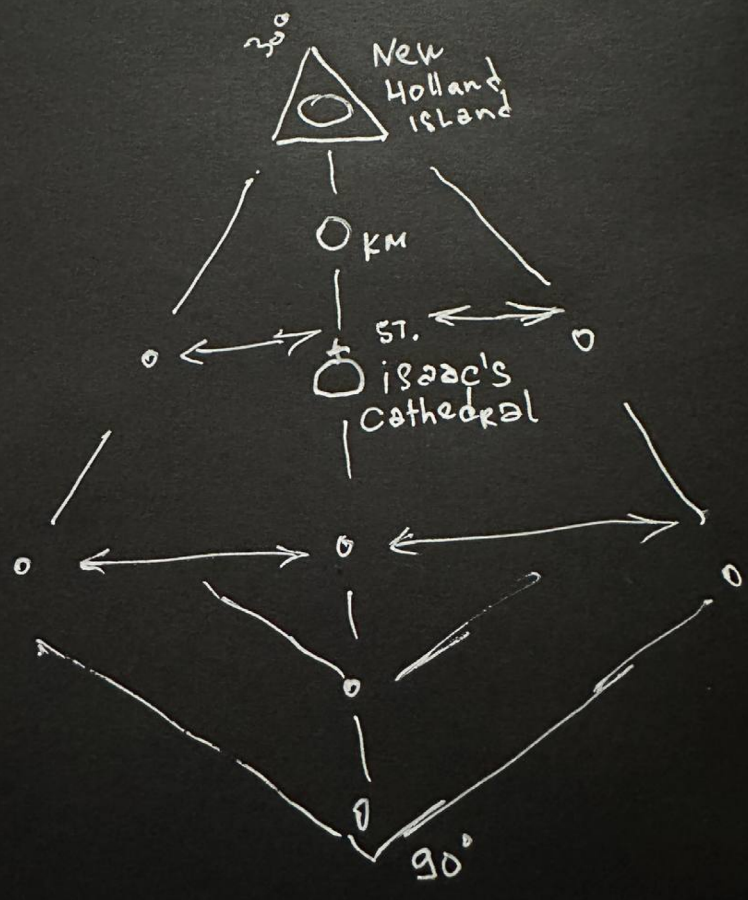 30°
New
Holland
island
KM
ST.
isaac's
Cathedral
90°